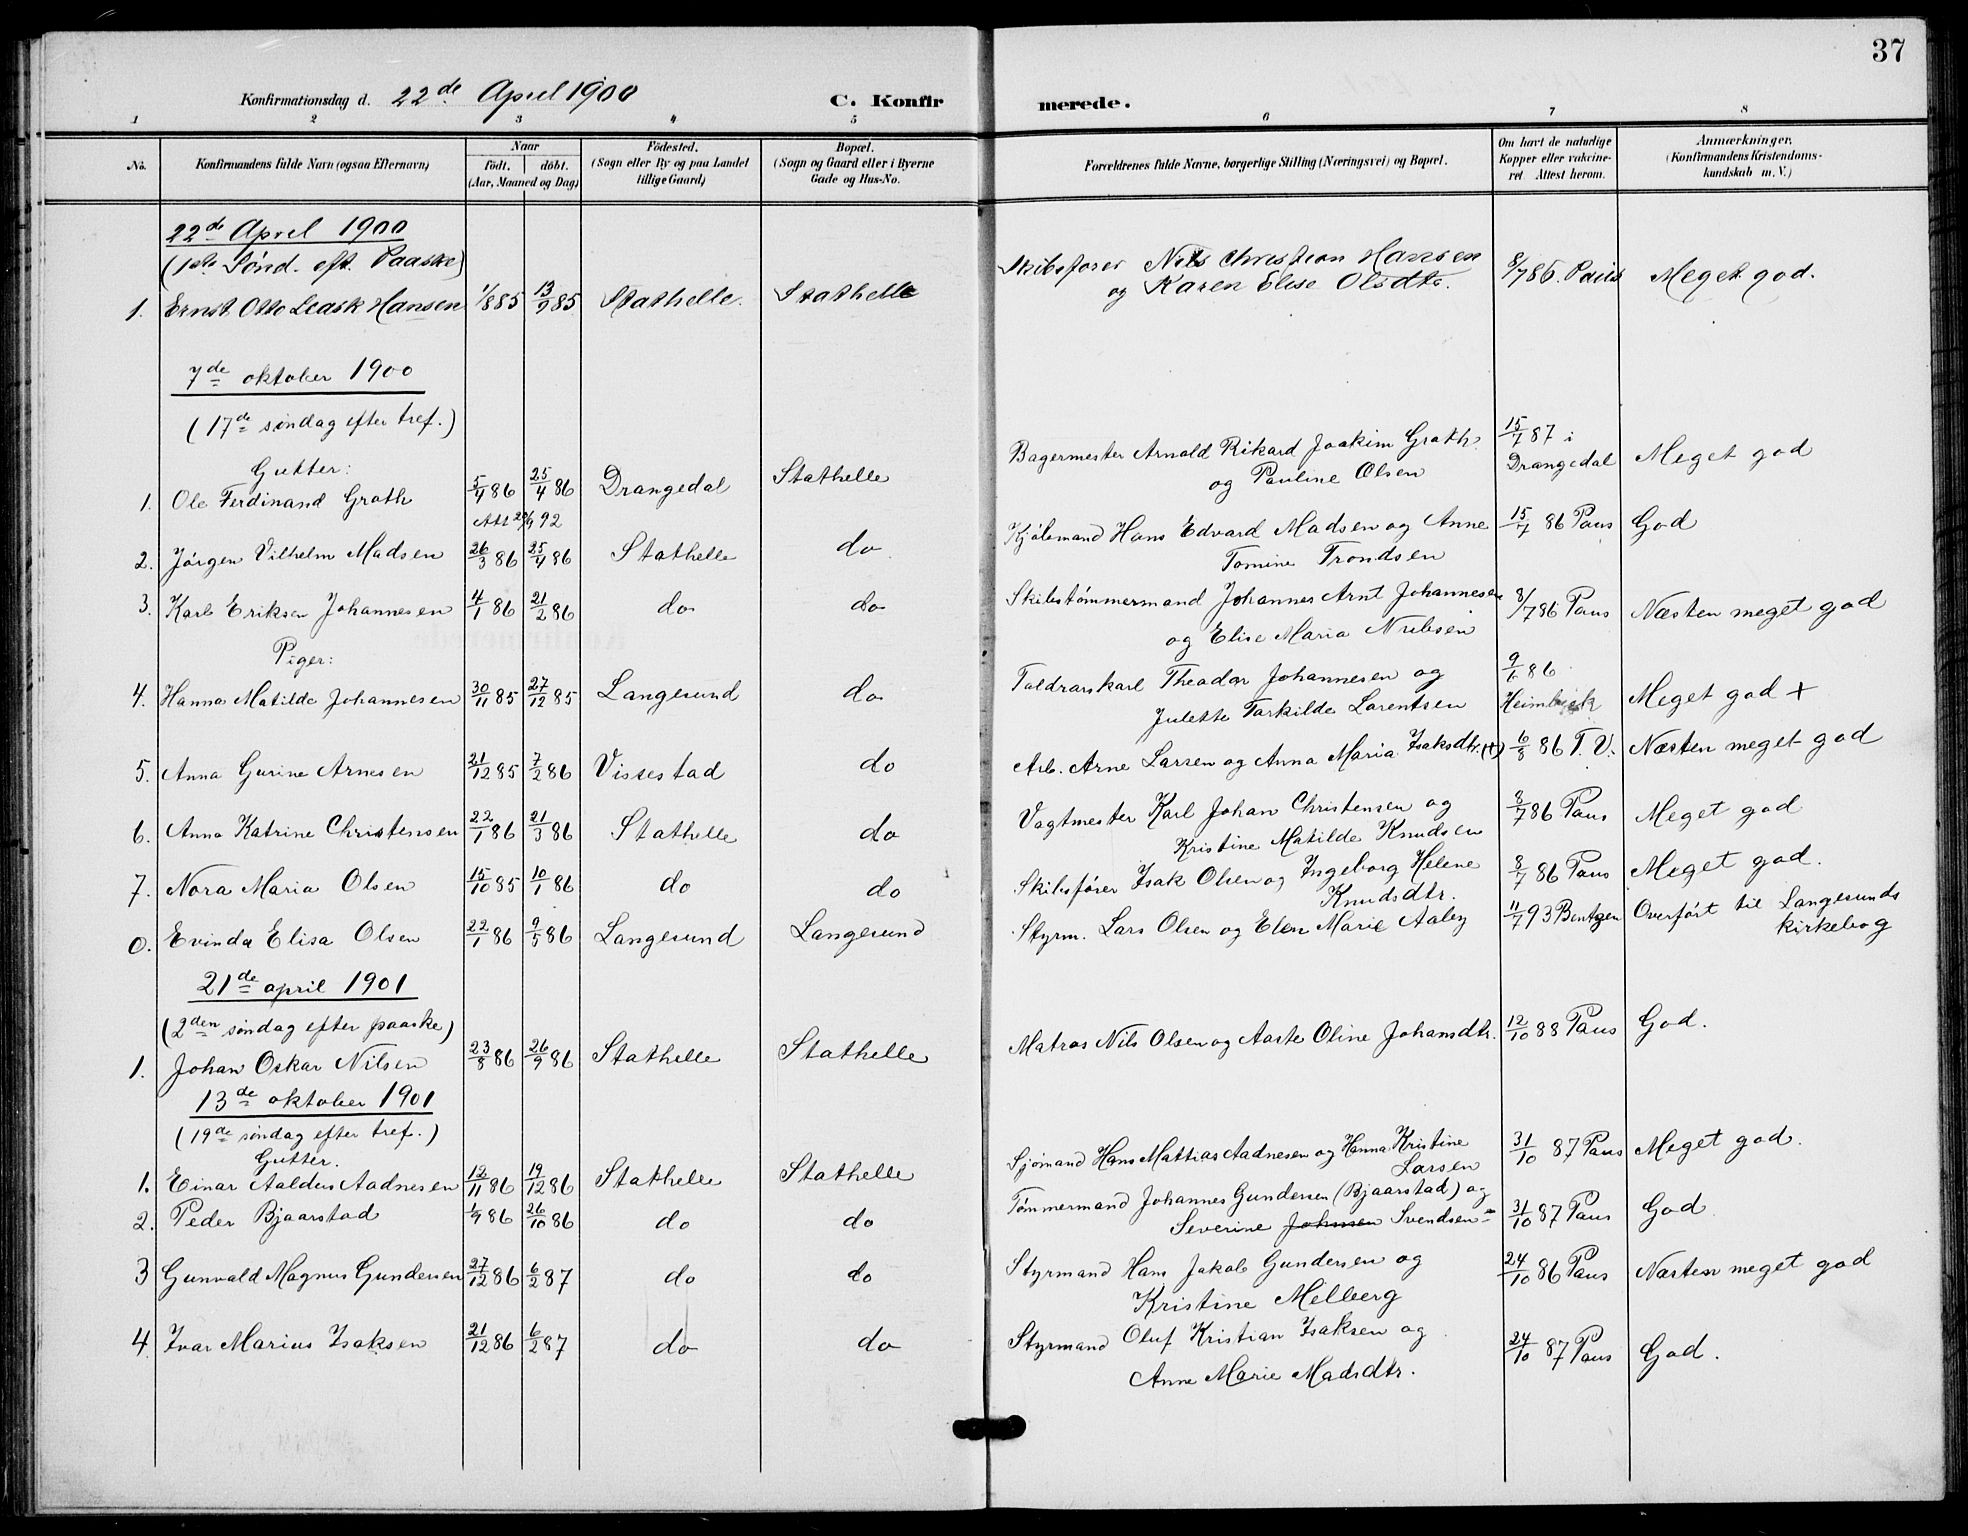 37
Konfirmationsdag d. 22de April 1900 C. Konfir merede.
1 2 3 4 5 6 7 8
No. Konfirmandens fulde Navn (ogsaa Efternavn) Naar født. døbt. (Aar, Maaned og Dag) Fødested. (Sogn eller By og paa Landet tillige Gaard) Bopæl. (Sogn og Gaard eller i Byerne Gade og Hus-No. Forældrenes fulde Navne, borgerlige Stilling (Næringsvei) og Bopæl. Om havt de naturlige Kopper eller vakcineret. Attest herom. Anmærkninger, (Konfirmandens Kristendomskundskab m. V.)
22de April 1900
(1ste Sönd. eft. Paaske)
1. Ernst Otto Leask Hansen 1/8 85 13/9 85 Stathelle. Stathelle Skibsfører Nils Christian Hansen 8/7 86. Paus Meget god.
og Karen Elise Olsdtr.
7de oktober 1900
(17de søndag efter tref.)
Gutter:
1. Ole Ferdinand Groth 5/4 86 25/4 86 Drangedal Stathelle Bagermester Arnold Rikard Joakim Groth 15/7 87 i Meget god
Att 20/9 92 og Pauline Olsen Drangedal
2. Jørgen Vilhelm Madsen 26/3 86 25/4 86 Stathelle do Kjølemand Hans Edvard Madsen og Anne 15/7 86 Paus God
Tomine Trondsen
3. Karl Eriksen Johannesen 4/1 86 21/2 86 do do Skibstømmermand Johannes Arnt Johannesen 8/7 86 Paus Næsten meget god
og Elise Maria Nilsen
Piger:
4. Hanna Matilde Johannesen 30/11 85 27/12 85 Langesund do Toldrorskarl Theodor Johannesen og 9/6 86 Meget god +
Julette Torkilde Lorentsen
5. Anna Gurine Arnesen 21/12 85 7/2 86 Vissestad do Arb. Arne Larsen og Anna Maria Isaksdtr. (+) 6/8 86 T. V. Næsten meget god
6. Anna Katrine Christensen 22/1 86 21/3 86 Stathelle do Vagtmester Karl Johan Christensen og 8/7 86 Paus Meget god
Kristine Matilde Knudsen
7. Nora Maria Olsen 15/10 85 10/1 86 do do Skibsfører Isak Olsen og Ingeborg Helene 8/7 86 Paus Meget god.
Knudsdtr.
0. Evinda Elisa Olsen 22/1 86 9/5 86 Langesund Langesund Styrm. Lars Olsen og Elen Marie Aaby 11/7 93 Bentzen Overført til Langesunds
kirkebog
21de april 1901
(2den søndag efter paaske)
1. Johan Oskar Nilsen 23/8 86 26/9 86 Stathelle Stathelle Matros Nils Olsen og Aaste Oline Johansdtr. 12/10 88 Paus God.
13de oktober 1901
(19de søndag efter tref.)
Gutter.
1. Einar Aalders Aadnesen 12/11 86 19/12 86 Stathelle Stathelle Sjömand Hans Mattias Aadnesen og Hanna Kristine 31/10 87 Paus Meget god.
Larsen
2. Peder Bjaarstad 1/9 86 26/10 86 do do Tømmermand Johannes Gundersen (Bjaarstad) og 31/10 87 Paus God
Severine Johnsen Svendsen
3 Gunvald Magnus Gundersen 27/12 86 6/2 87 do do Styrmand Hans Jakob Gundersen og 24/10 86 Paus Næsten meget god
Kristine Melberg
4. Ivar Marius Isaksen 21/12 86 6/2 87 do do Styrmand Oluf Kristian Isaksen og 24/10 87 Paus God.
Anne Marie Madsdtr.